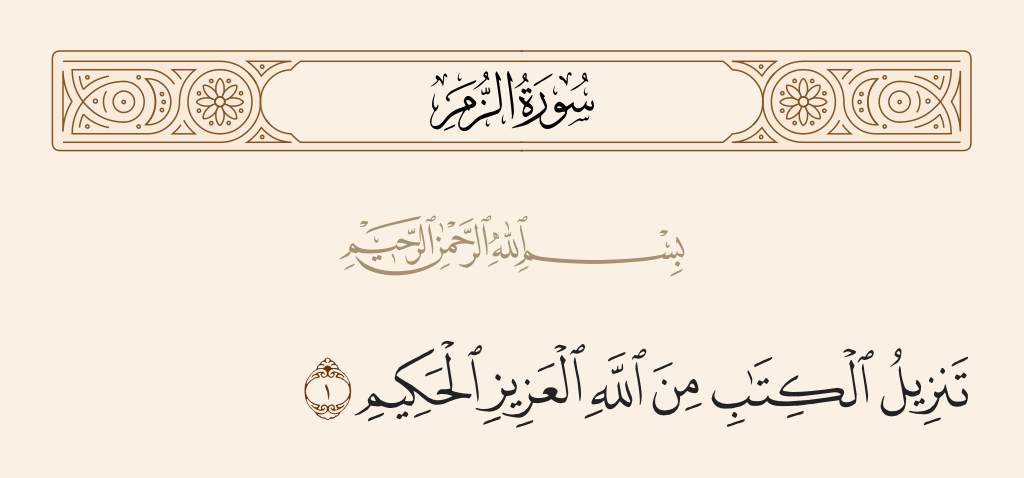 سُورَةُ الزُّمَرِ
بِسْمِ ٱللَّهِ ٱلرَّحْمَٰنِ ٱلرَّحِيمِ
تَنزِيلُ ٱلْكِتَٰبِ مِنَ ٱللَّهِ ٱلْعَزِيزِ ٱلْحَكِيمِ ١